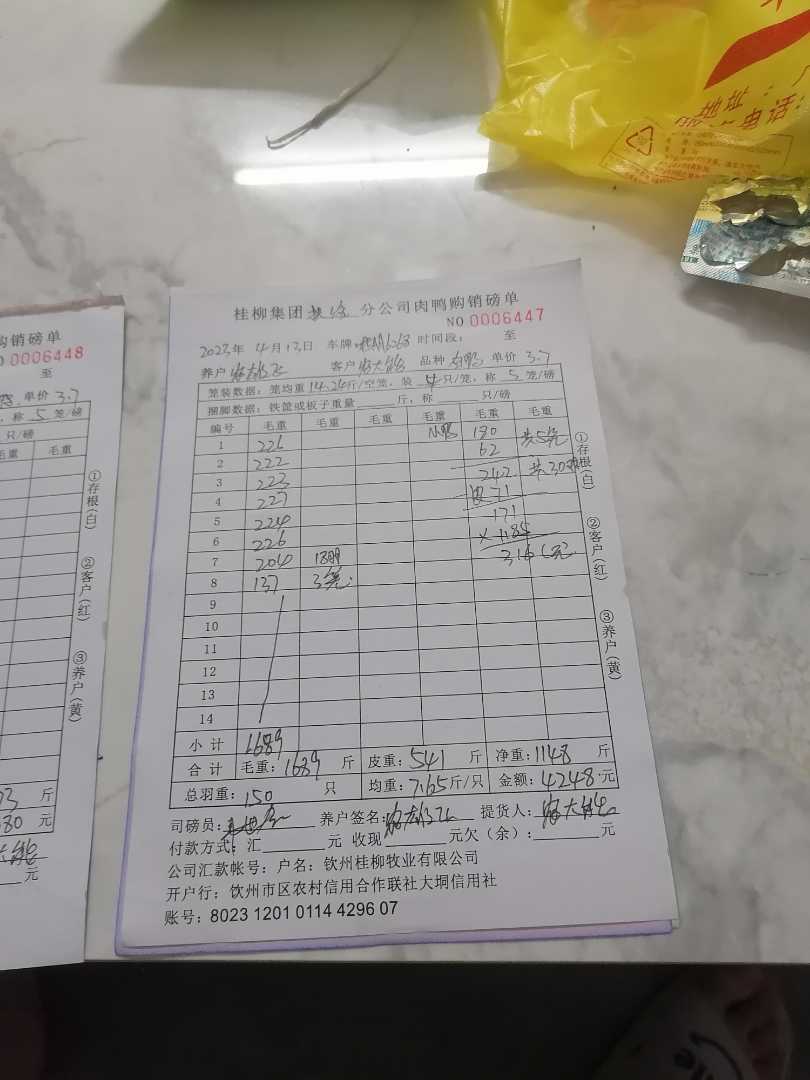 地址：广
电话：
购销磅单
0006448
至
单价 3.7
称 5 笼/磅
只/磅
毛重 毛重
①存根(白)
②客户(红)
③养户(黄)
斤
元
元
桂柳集团 分公司肉鸭购销磅单
NO 0006447
2023年 4月13日 车牌: 时间段: 至
养户 客户 品种 单价 3.7
笼装数据: 笼均重 14.24斤/空笼, 装 4 只/笼, 称 5 笼/磅
捆脚数据: 铁筐或板子重量 斤, 称 只/磅
编号 毛重 毛重 毛重 毛重 毛重 毛重
1 226 180 共5笼
2 222 62
3 223 242
4 227 71
5 224 171
6 226 ×1.85
7 204 316元
8 137 3笼
9
10
11
12
13
14
小计 1689
合计 毛重: 1689 斤 皮重: 541 斤 净重: 1148 斤
总羽重: 150 只 均重: 7.65斤/只 金额: 4248元
司磅员: 养户签名: 提货人:
付款方式: 汇 元 收现 元欠(余): 元
公司汇款帐号: 户名: 钦州桂柳牧业有限公司
开户行: 钦州市区农村信用合作联社大垌信用社
账号: 8023 1201 0114 4296 07
①存根(白)
②客户(红)
③养户(黄)